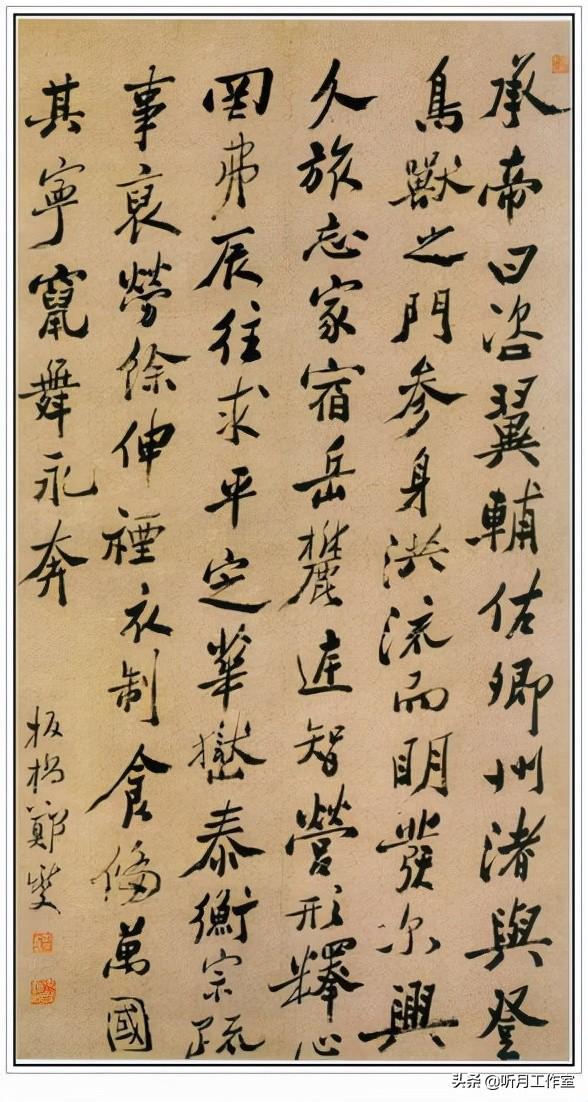 承帝曰咨翼輔佐卿州渚與登
鳥獸之門参身洪流而明發尔興
久旅忘家宿岳麓庭智營形釋心
罔弗辰往求平定華嶽泰衡宗疏
事裒勞餘伸禋衣制食俻萬國
其寧竄舞永奔
板橋鄭燮
头条 @听月工作室